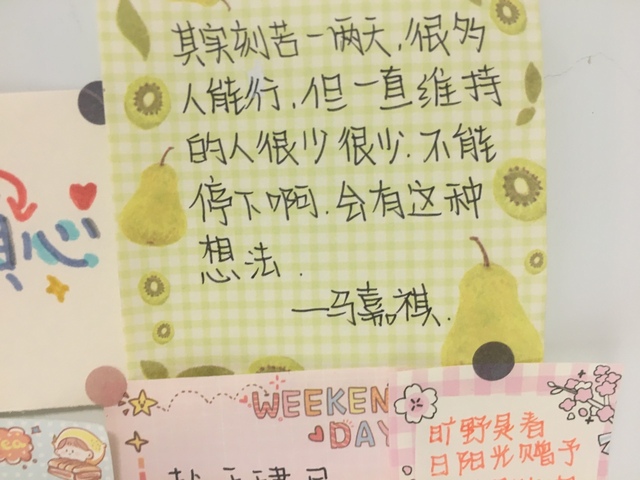 其实刻苦一两天，很多
人能行，但一直维持
的人很少很少.不能
停下啊.会有这种
想法.
—马嘉祺.
心
WEEKEN
DAY
旷野是春
日阳光赠予